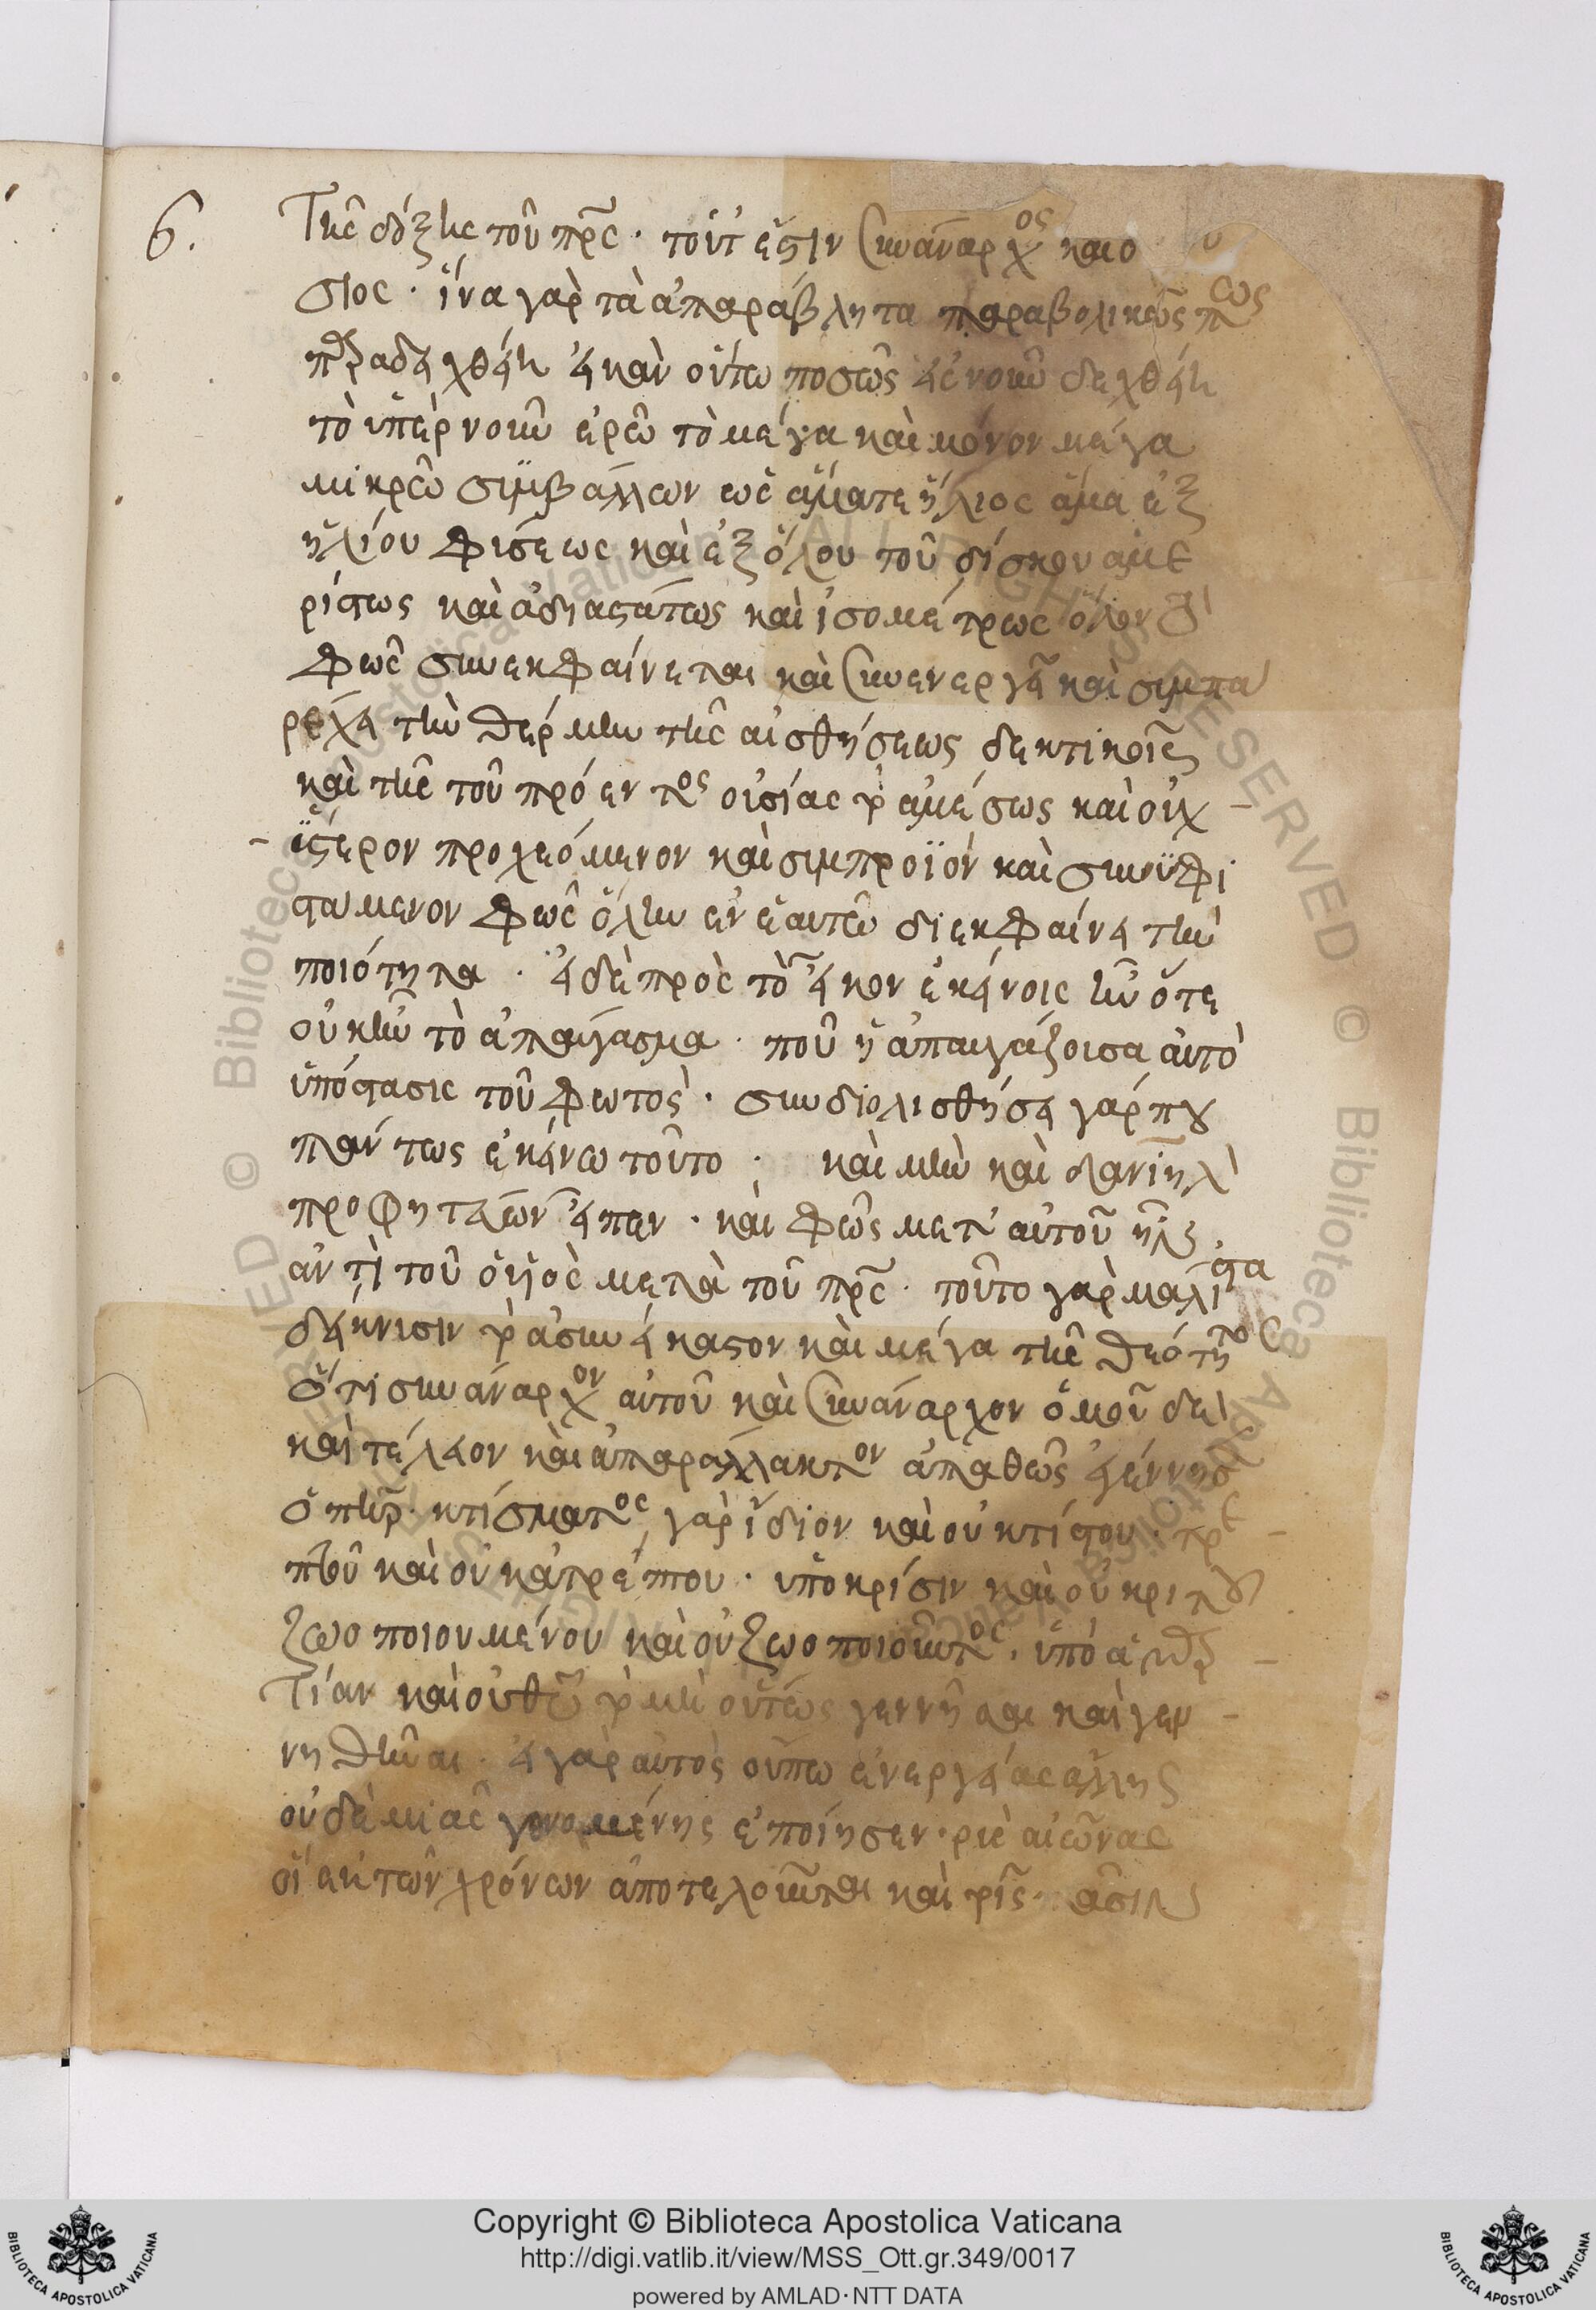 6.
τῆς δόξης τοῦ πρς· τοῦτ' ἔστιν συνάναρχος καὶ ὁ
σιος· ἵνα γὰρ τὰ ἀπαράβλητα παραβολικῶς πως
παραδειχθείη εἰ καὶ οὕτω ποσῶς δειχθείη
τὸ ὑπὲρ νοῦν ἐρῶ τὸ μέγα καὶ μόνον μέγα
μικρῶ συμβάλλων ὡς ἅμα τε ἥλιος ἅμα ἐξ
ἡλίου φύσεως καὶ ἐξ ὅλου τοῦ δίσκου ἀμε
ρίστως καὶ ἀδιαστάτως καὶ ἰσομέτρως ὅλον τὸ
φῶς συνεκφαίνεται καὶ συνενεργεῖ καὶ συμπα
ρέχει τὴν θέρμην τῆς αἰσθήσεως δεκτικοῖς
καὶ τῆς τοῦ προέντος οὐσίας ἀμέσως καὶ οὐχ
ὕστερον προχεόμενον καὶ συμπροϊὸν καὶ συνυφι
στάμενον φῶς ὅλην ἐν ἑαυτῶ διεκφαίνει τὴν
ποιότητα· εἰ δὲ πρὸς τὸ εἰκὸν ἐκείνοις ἦν ὅτε
οὐκ ἦν τὸ ἀπαύγασμα· ποῦ ἡ ἀπαυγάζουσα αὐτὸ
ὑπόστασις τοῦ φωτός· συνδιολισθήσει γάρ που
πάντως ἐκείνω τοῦτο· καὶ μὴν καὶ δανιὴλ
προφητεύων εἶπεν· καὶ φῶς μετ' αὐτοῦ
ἀντὶ τοῦ ὁ υἱὸς μετὰ τοῦ πρς· τοῦτο γὰρ μάλιστα
δείκνυσιν τὸ ἀσυνείκαστον καὶ μέγα τῆς θεότητος
ὅτι συνάναρχον αὐτοῦ καὶ συνάναρχον ὁμοῦ δὲ
καὶ τέλειον καὶ ἀπαράλλακτον ἀπαθῶς ἐγέννησ
ὁ πηρ· κτίσματος γὰρ ἴδιον καὶ οὐ κτίστου· τρε
πτοῦ καὶ οὐκ ἀτρέπτου· ὑπὸ κρίσιν καὶ οὐ κριτοῦ
ζωοποιουμένου καὶ οὐ ζωοποιοῦντος· ὑπὸ ἁμαρ
τίαν καὶ οὐ θυ τὸ μὴ οὕτως γεννῆσαι καὶ γεν
νηθῆναι· εἰ γὰρ αὐτὸς οὔπω ἐνεργείας ἄλλης
οὐδὲ μιᾶς γενομένης ἐποίησεν· αἰῶνας
οἱ ἐκ τῶν χρόνων ἀποτελοῦνται καὶ
Copyright © Biblioteca Apostolica Vaticana
http://digi.vatlib.it/view/MSS_Ott.gr.349/0017
powered by AMLAD·NTT DATA